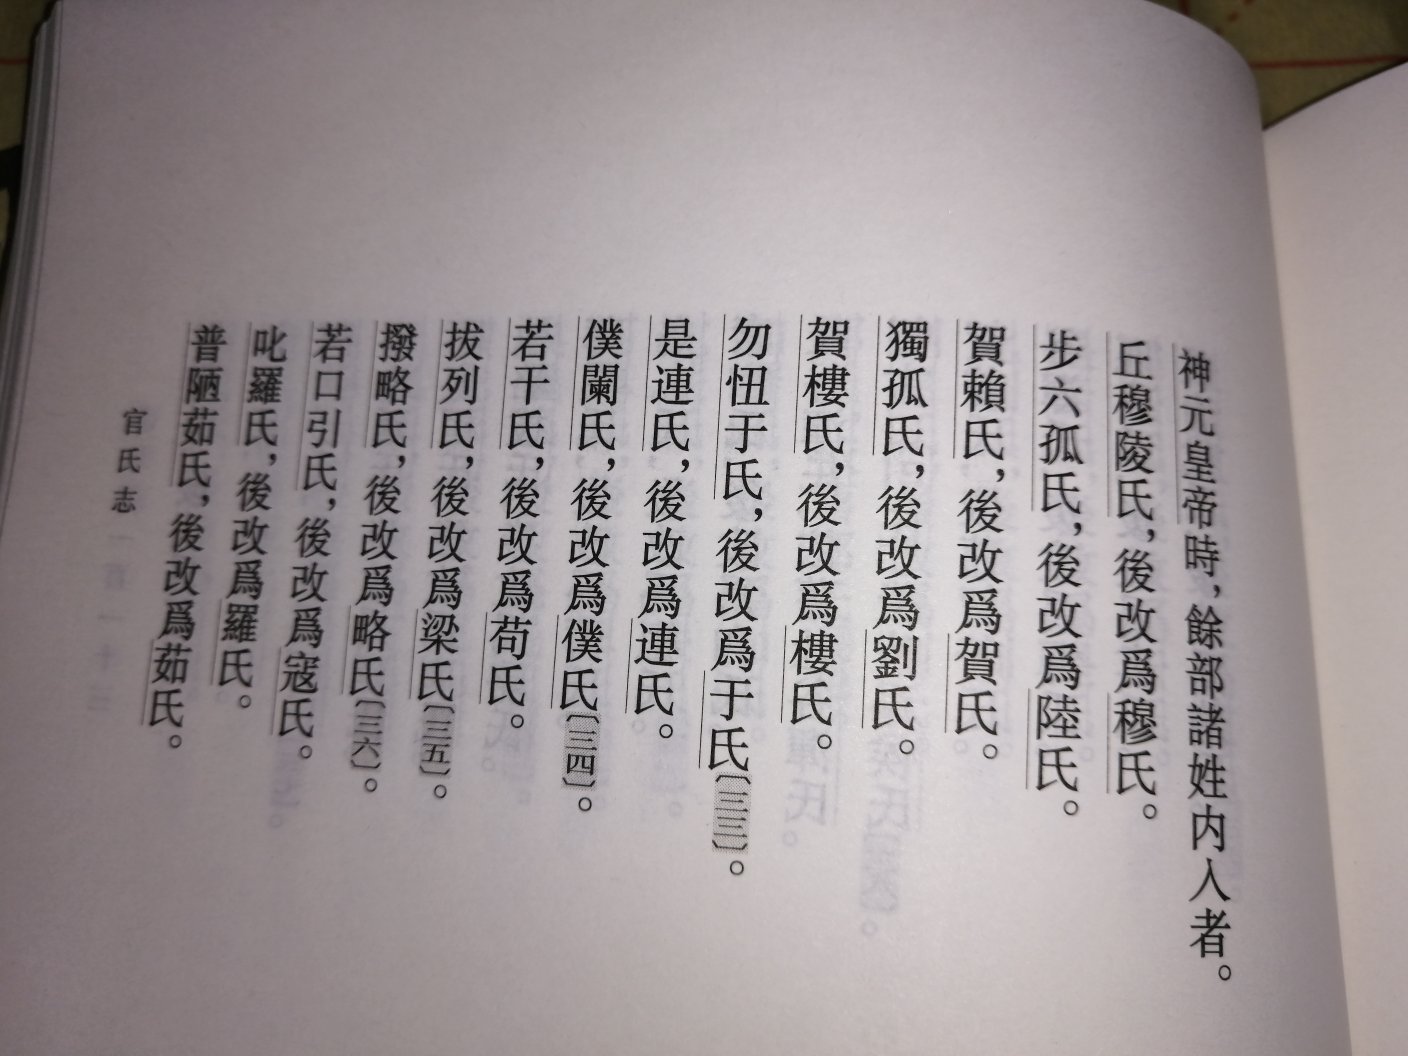 神元皇帝時，餘部諸姓內入者。
丘穆陵氏，後改爲穆氏。
步六孤氏，後改爲陸氏。
賀賴氏，後改爲賀氏。
獨孤氏，後改爲劉氏。
賀樓氏，後改爲樓氏。
勿忸于氏，後改爲于氏〔三三〕。
是連氏，後改爲連氏。
僕闌氏，後改爲僕氏〔三四〕。
若干氏，後改爲苟氏。
拔列氏，後改爲梁氏〔三五〕。
撥略氏，後改爲略氏〔三六〕。
若口引氏，後改爲寇氏。
叱羅氏，後改爲羅氏。
普陋茹氏，後改爲茹氏。
官氏志